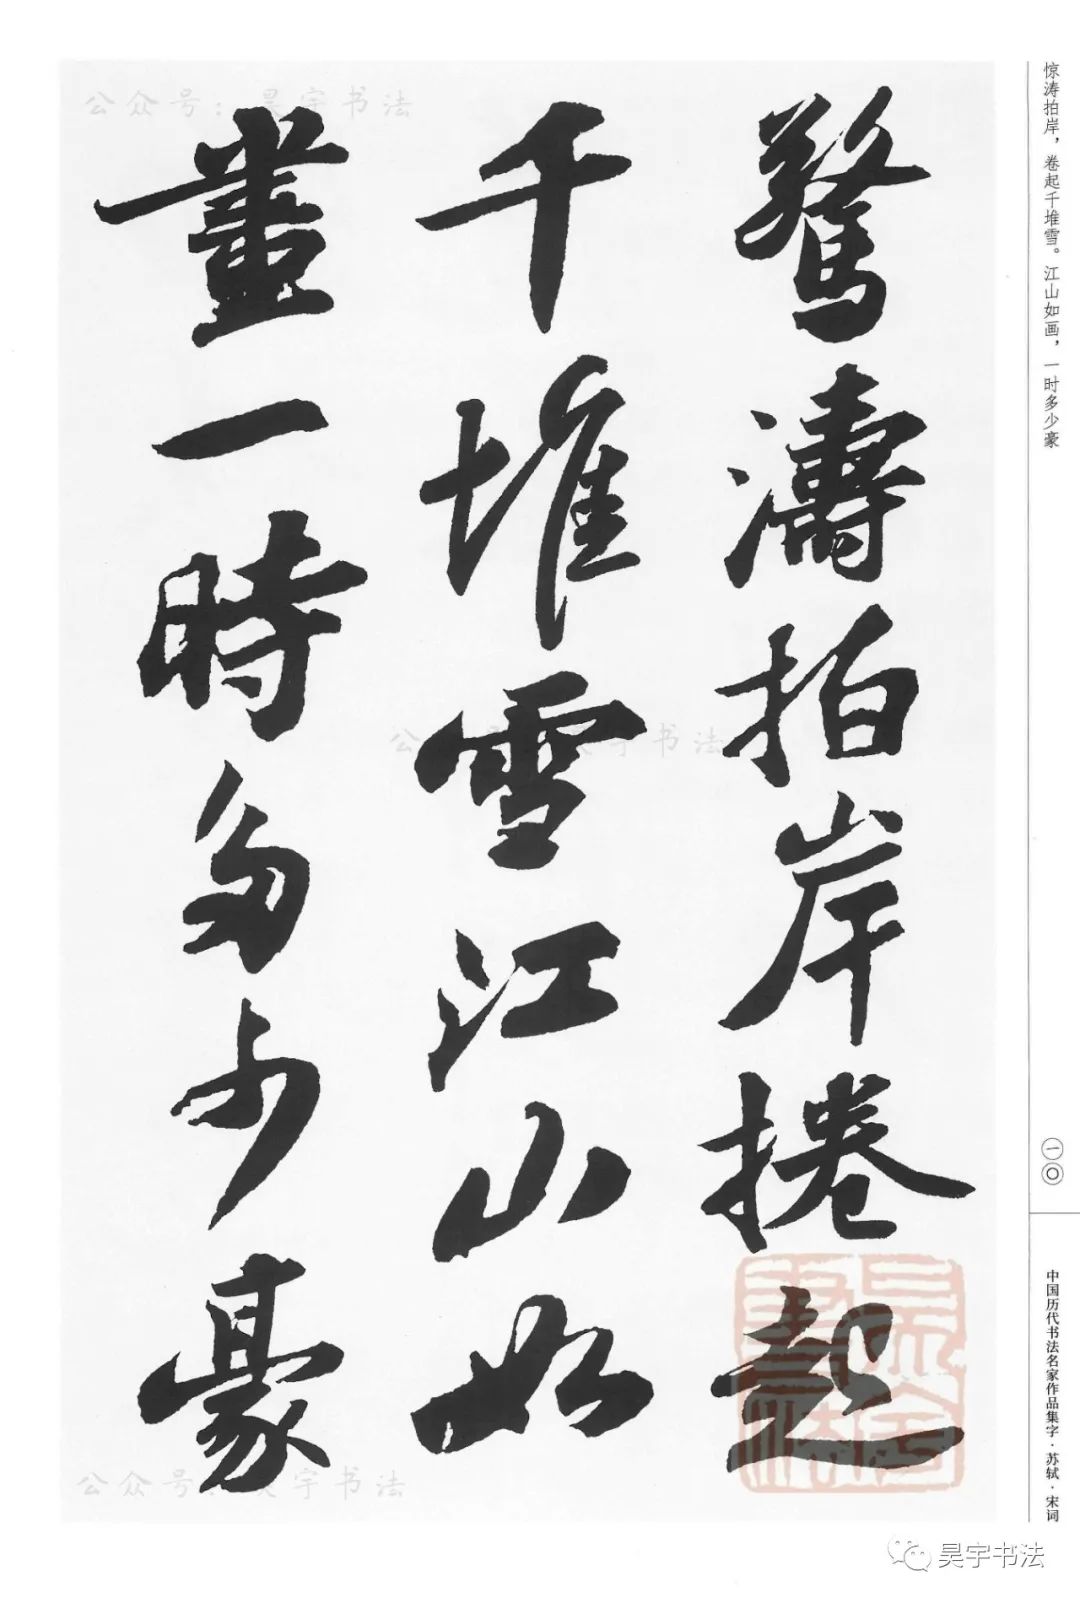 惊涛拍岸，卷起千堆雪。江山如画，一时多少豪
驚濤拍岸捲起
千堆雪江山如
畫一時多少豪
一〇
中国历代书法名家作品集字·苏轼·宋词
公众号：昊宇书法
公众号：昊宇书法
公众号：昊宇书法
昊宇书法
昊宇书法